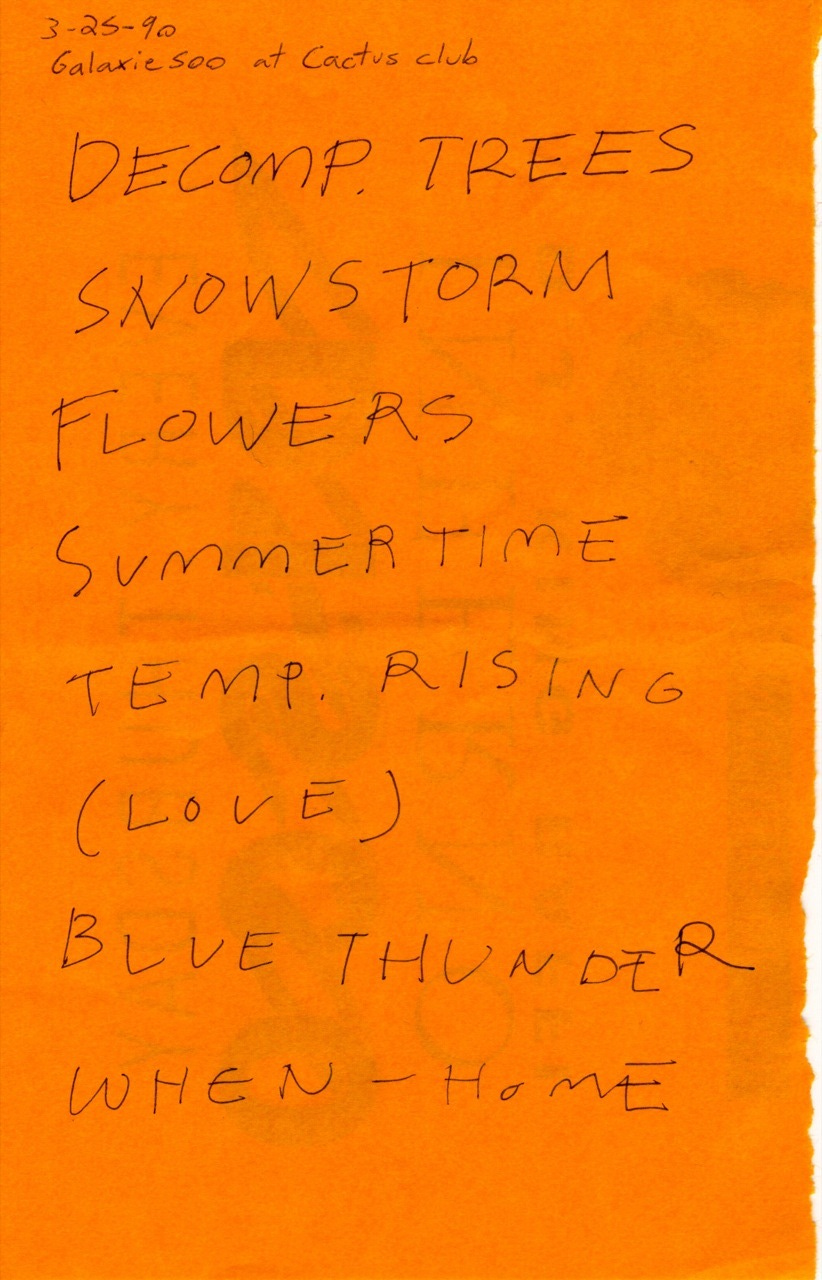 3-25-90
Galaxie 500 at Cactus club
DECOMP. TREES
SNOWSTORM
FLOWERS
SUMMERTIME
TEMP. RISING
(LOVE)
BLUE THUNDER
WHEN - HOME